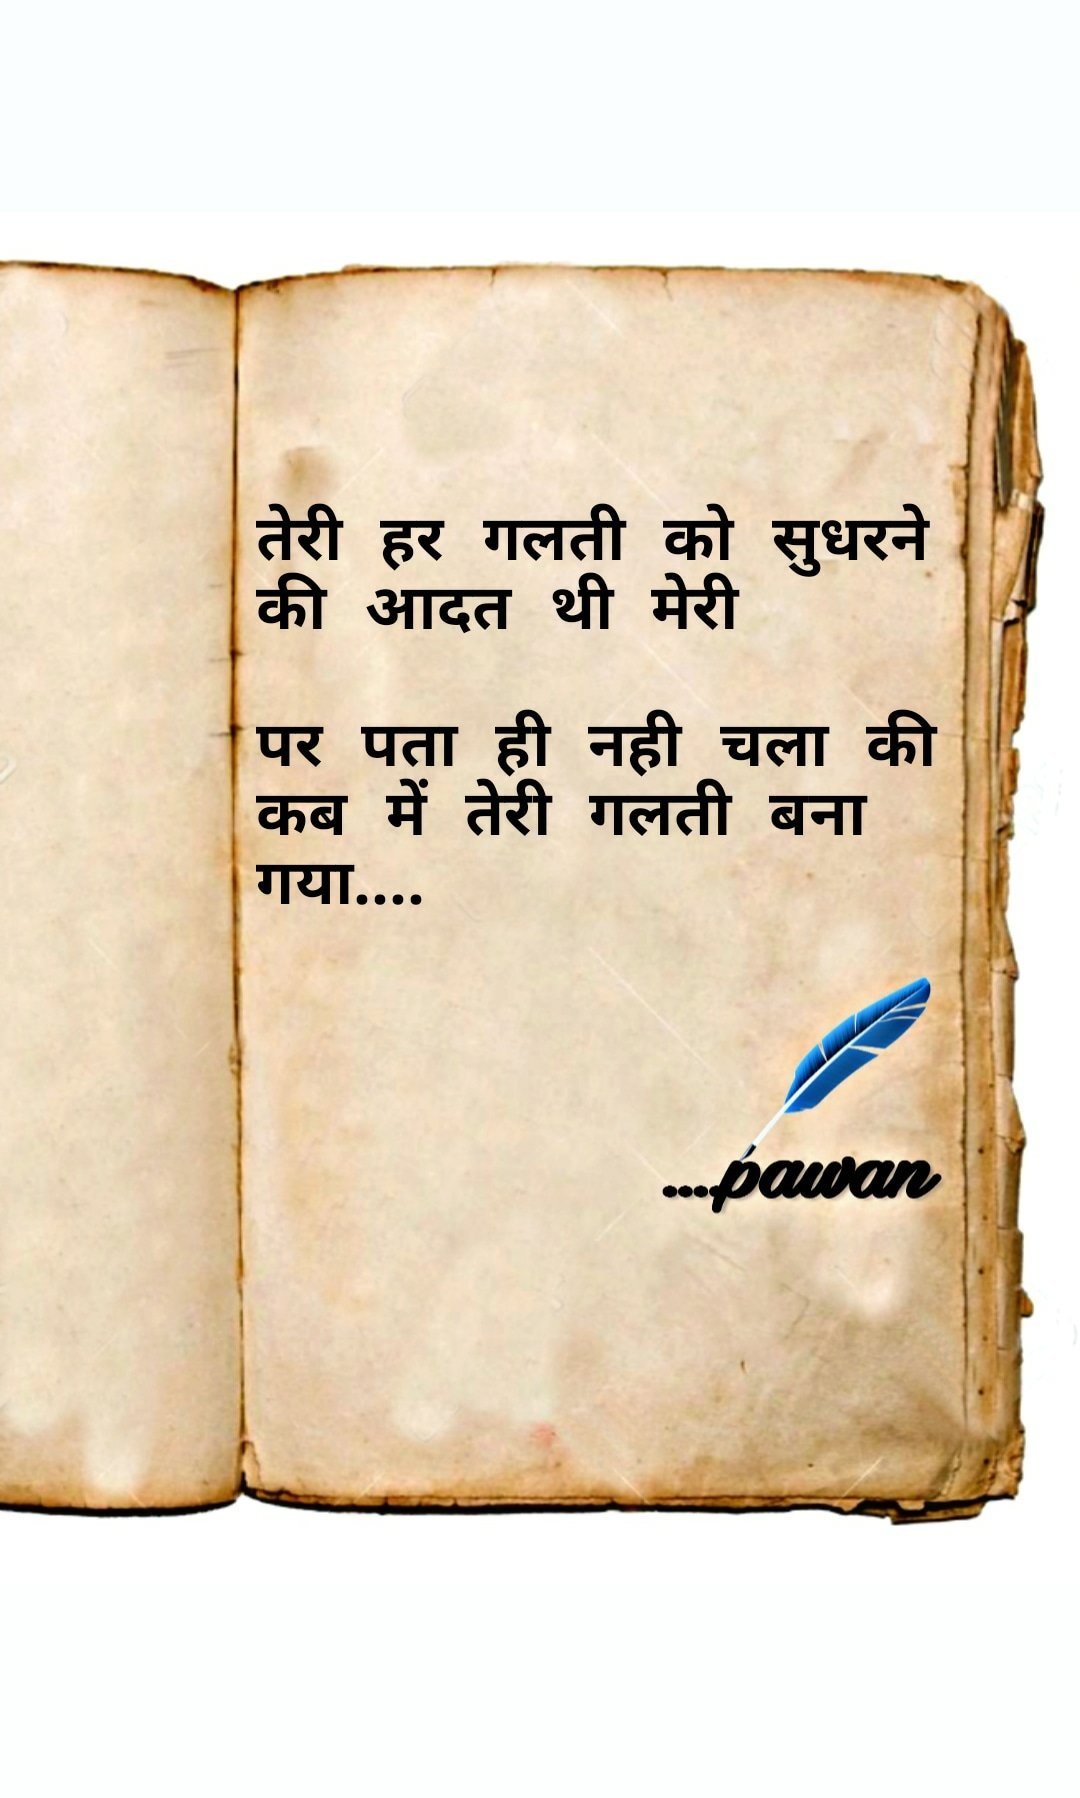 तेरी हर गलती को सुधरने
की आदत थी मेरी
पर पता ही नही चला की
कब में तेरी गलती बना
गया....
....pawan